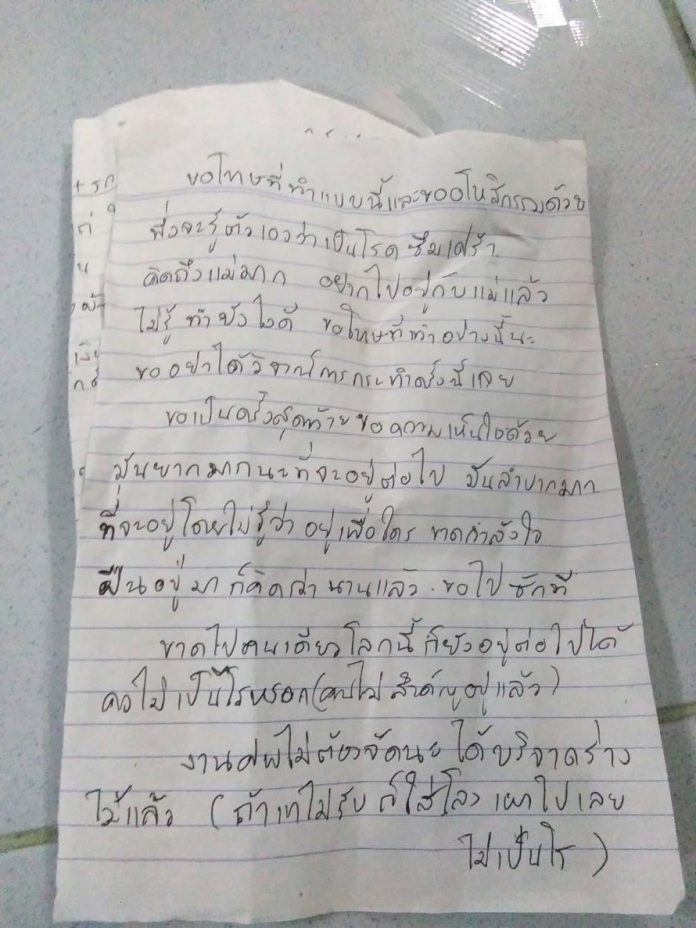 ขอโทษที่ทำแบบนี้และขออโหสิกรรมด้วย
พึ่งจะรู้ตัวเองว่าเป็นโรคซึมเศร้า
คิดถึงแม่มาก อยากไปอยู่กับแม่แล้ว
ไม่รู้ทำยังไงดี ขอโทษที่ทำอย่างนี้นะ
ขออย่าได้วิจารณ์การกระทำครั้งนี้เลย
ขอเป็นครั้งสุดท้ายขอความเห็นใจด้วย
มันยากมากนะที่จะอยู่ต่อไป มันลำบากมาก
ที่จะอยู่โดยไม่รู้ว่าอยู่เพื่อใคร ขาดกำลังใจ
ฝืนอยู่มาก็คิดว่านานแล้ว ขอไปซักที
ขาดไปคนเดียวโลกนี้ก็ยังอยู่ต่อไปได้
คงไม่เป็นไรหรอก(คนไม่สำคัญอยู่แล้ว)
งานศพไม่ต้องจัดนะ ได้บริจาคร่าง
ไว้แล้ว (ถ้าเขาไม่รับก็ใส่โลงเผาไปเลย
ไม่เป็นไร)